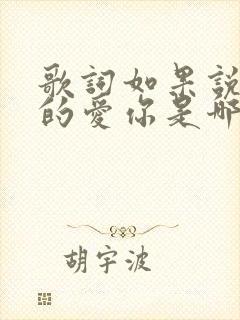 歌詞如果說
的愛你是那
胡宇波